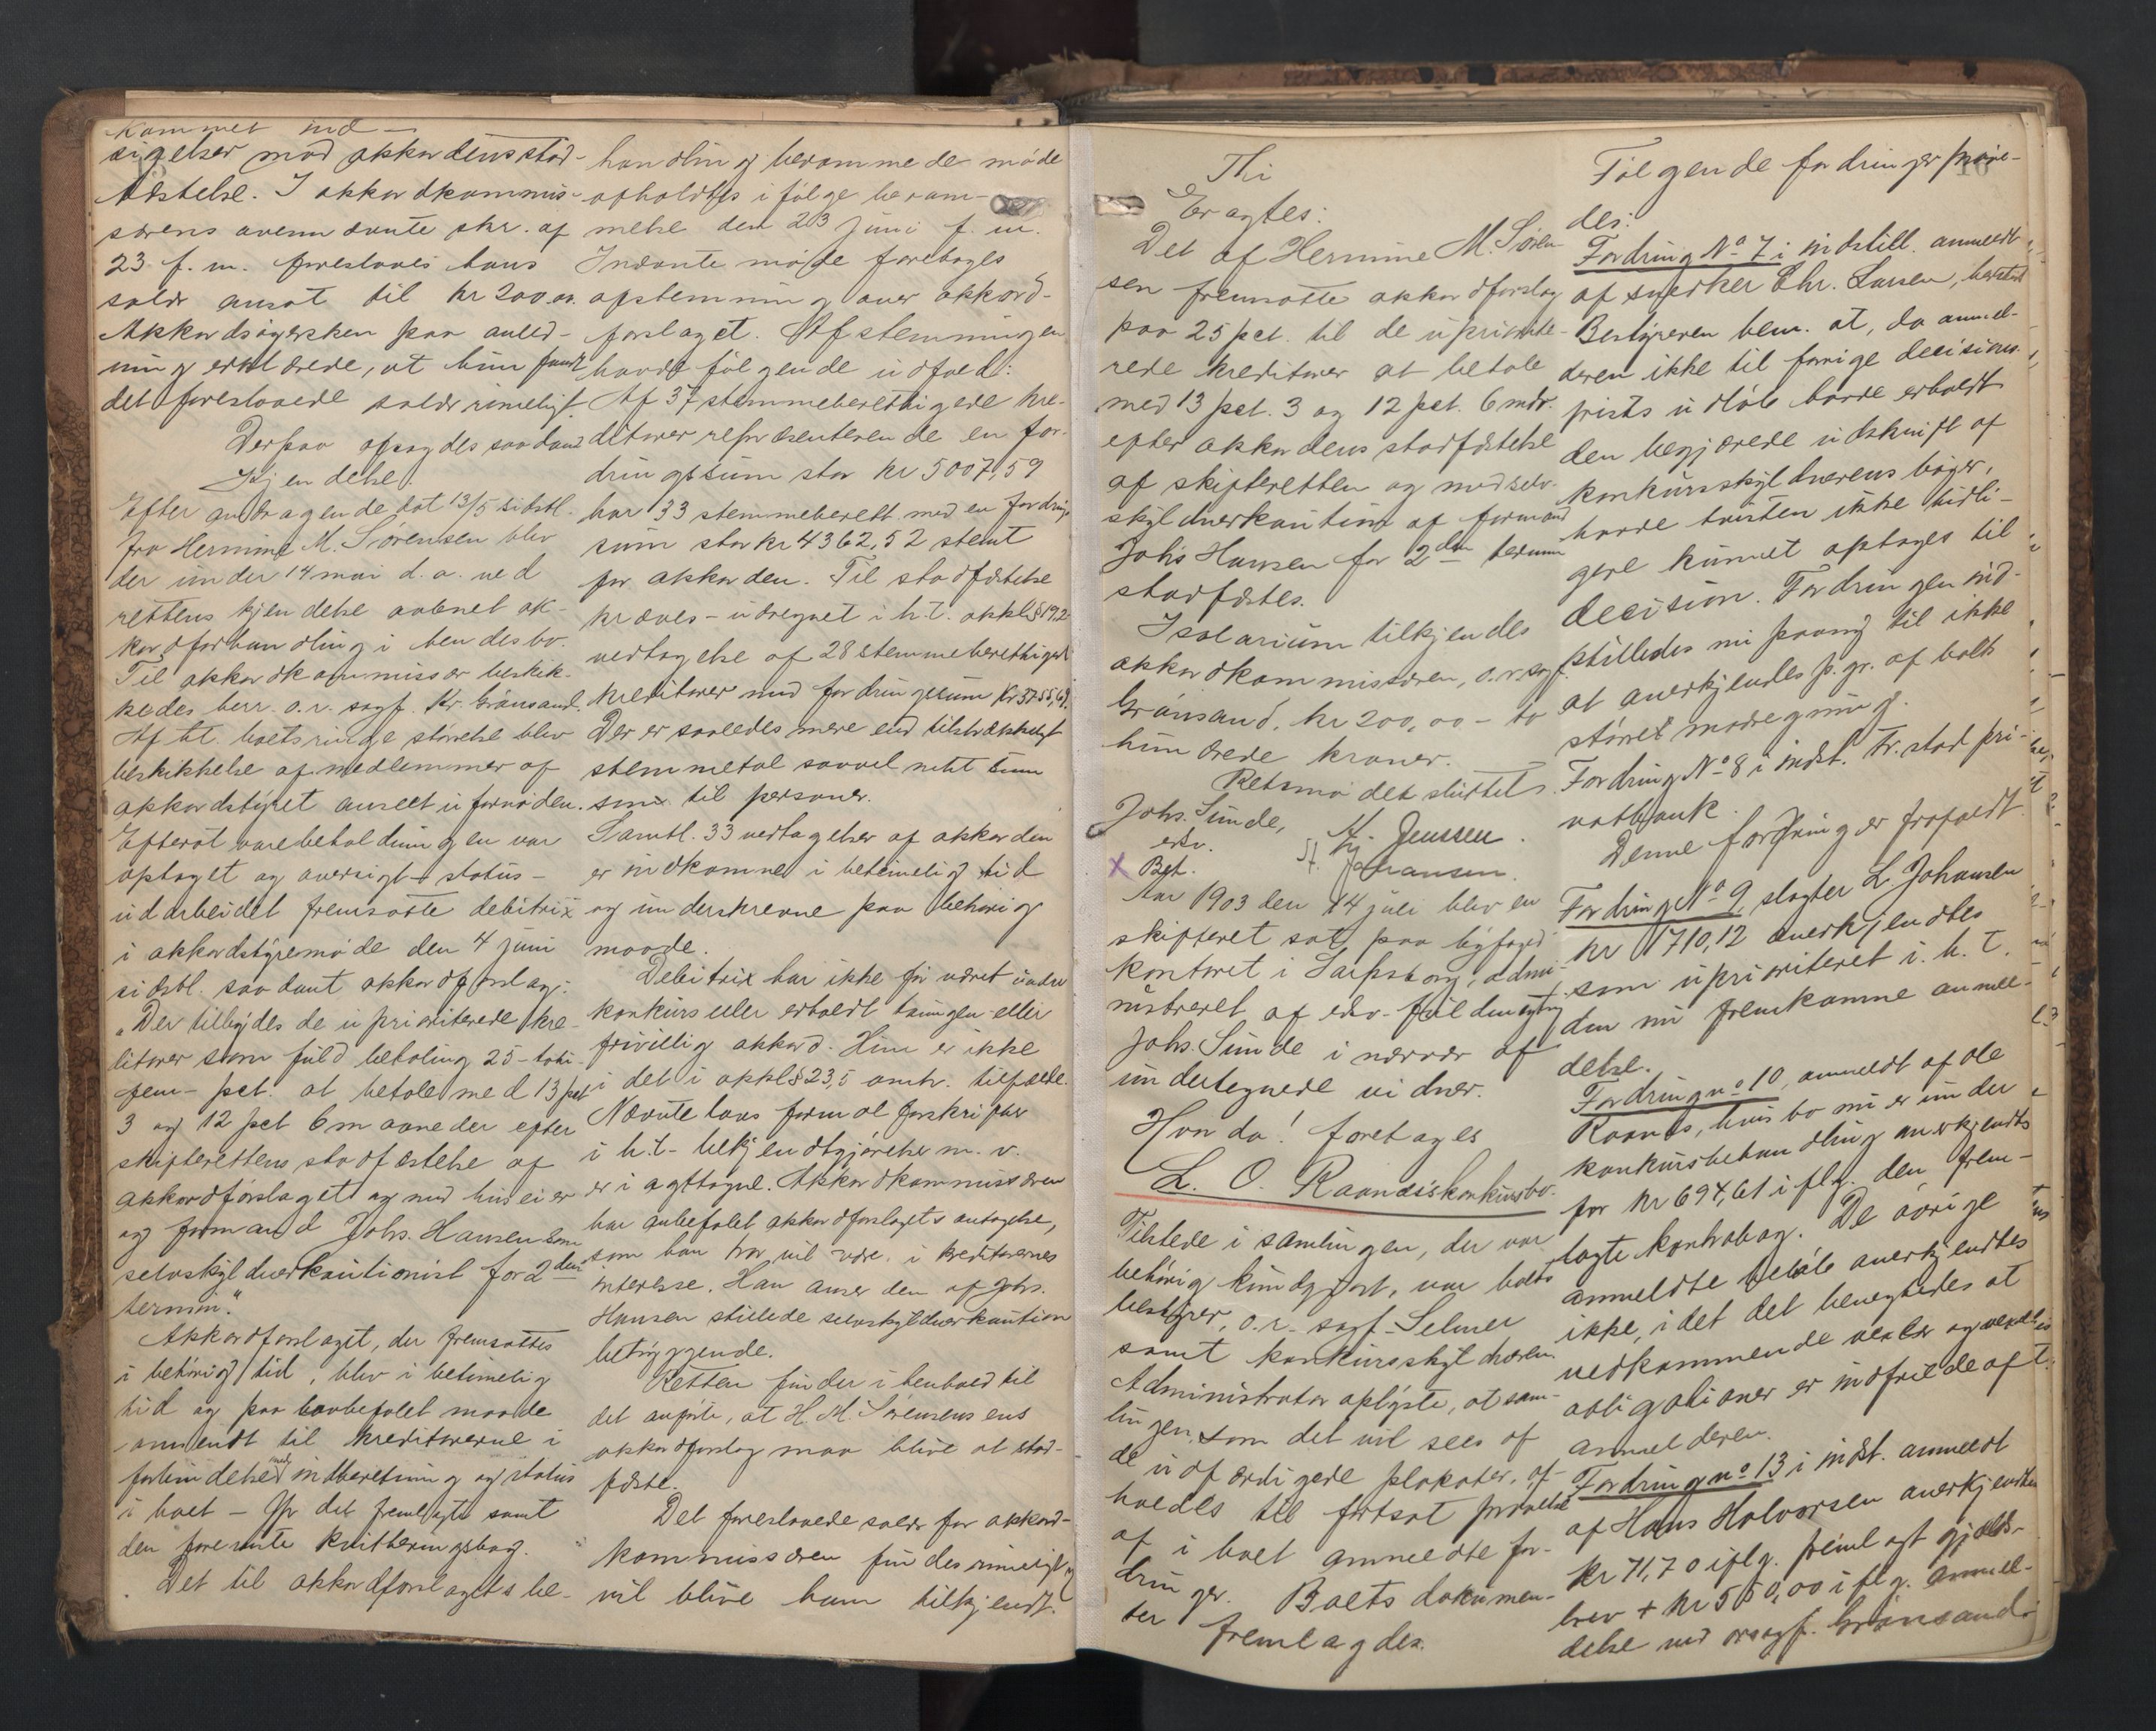 kommet ind-
sigelser mod akkordens stad-
fæstelse. I akkordkommis-
særens ovennævnte skr. af
23 f. m. foreslaaes hans
salær ansat til kr 200.00.
Akkordsøgersken paa anled-
ning erklærede, at hun fandt
det foreslaaede salær rimeligt.
Derpaa afsagdes saadan
Kjendelse:
Efter andragende dat 13/5 sidstl.
fra Hermine M. Sørensen blev
der under 14 mai d. a. ved
rettens kjendelse aabnet ak-
kordforhandling i hendes bo.
Til akkordkommissær beskik-
kedes herr o.r. sagf. Kr. Grønsand.
Af ht. boets ringe størrelse blev
beskikkelse af medlemmer af
akkordstyret anseet ufornøden.
Efterat varebeholdningen var
optaget og oversigt - status -
udarbeidet fremsatte debitrix
i akkordstyremøde den 4 juni
sidstl. saadant akkordforslag:
"Der tilbydes de uprioriterede kre-
ditorer som fuld betaling 25 - toti-
fem - pct. at betale med 13 pct
3 og 12 pct 6 maaneder efter
skifterettens stadfæstelse af
akkordforslaget og med huseier
og formand Johs. Hansen som
selvskyldnerkautionist for 2den
termin."
Akkordforslaget, der fremsattes
i behørig tid, blev i betimelig
tid og paa lovbefalet maade
omsendt til kreditorerne i
forbindelse med indberetning og status
i boet - Jfr det fremlagte samt
den forevnte kvitteringsbog.
Det til akkordforslagets be-
handling berammede møde
afholdtes i følge beram-
melse den 23 juni f. m.
I nævnte møde foretoges
afstemning over akkord-
forslaget. Afstemningen
havde følgende udfald:
Af 37 stemmeberettigede kre-
ditorer repræsenterende en for-
dringssum stor kr 5007,59
har 33 stemmeberett. med en fordrings
sum stor kr 4362,52 stemt
for akkorden. Til stadfæstelse
kræves - udregnet i h. t. akkl § 19,2
vedtagelse af 28 stemmeberettigede
kreditorer med fordringssum kr 3755,69.
Der er saaledes mere end tilstrækkeligt
stemmetal saavel m.h.t. sum
som til personer.
Samtl. 33 vedtagelser af akkorden
er indkomne i betimelig tid
og underskrevne paa behørig
maade.
Debitrix har ikke før været under
konkurs eller erholdt tvungen eller
frivillig akkord. Hun er ikke
i det i akkl § 23,5 omh. tilfælde.
Nævnte lovs formale forskrifter
i h.t. bekjendtgjørelser m. v.
er iagttagne. Akkordkommissæren
har anbefalet akkordforslagets antagelse,
som han tror vil være i kreditorernes
interesse. Han anser den af Johs.
Hansen stillede selvskyldnerkaution
betryggende.
Retten finder i henhold til
det anførte, at H. M. Sørensens
akkordforslag maa blive at stad-
fæste.
Det foreslaaede salær for akkord-
kommissæren findes rimeligt,
vil blive ham tilkjendt.
Thi
Eragtes:
Det af Hermine M. Søren
sen fremsatte akkordforslag
paa 25 pct. til de upriorite-
rede kreditorer at betale
med 13 pct. 3 og 12 pct. 6 mdr.
efter akkordens stadfæstelse
af skifteretten og med selv-
skyldnerkaution af formand
Johs Hansen for 2den termin
stadfæstes.
I salarium tilkjendes
akkordkommissæren, o.r.sagf.
Grønsand, kr 200,00 - to
hundrede kroner.
Retsmødet sluttet.
Johs. Sunde,
edsv.
Bet.
Kj. Jenssen.
Johansen.
Aar 1903 den 14 juli blev en
skifteret sat paa byfoged
kontoret i Sarpsborg, admi-
nistreret af edsv. fuldmægtig
Johs. Sunde i nærvær af
undertegnede vidner.
Hvor da! foretages
L. O. Raanaas konkursbo.
Tilstede i samlingen, der var
behørig kundgjort, var boets
bestyrer, o.r. sagf. Selmer
samt konkursskyldneren.
Administrator oplyste, at sam-
lingen, som det vil sees af
de udfærdigede plakater, af-
holdes til fortsat prøvelse
af i boet anmeldte for-
dringer. Boets dokumen-
ter fremlagdes.
Følgende fordringer prøve-
des:
Fordring No 7 i indstill. anmeldt
af snedker Chr. Larsen, bestrid
Bestyreren bem. at, da anmel-
deren ikke til forrige decisions
frists udløb havde erholdt
den begjærede udskrift af
konkursskyldnerens bøger,
havde tvisten ikke tidli-
gere kunnet optages til
decision. Fordringen ind-
stilledes nu paany til ikke
at anerkjendes p. gr. af boets
større modregning.
Fordring No 8 i indst. Fr.stad pri-
vatbank.
Denne fordring er frafaldt.
Fordring No 9, slagter L. Johansen
kr 1710,12 anerkjendtes
som uprioriteret i. h. t.
den nu fremkomne anmel-
delse.
Fordring no 10, anmeldt af Ole
Raanaas, hvis bo nu er under
konkursbehandling anerkjendtes
for kr 694,61 iflg. den frem-
lagte kontrabog. De øvrige
anmeldte beløb anerkjendtes
ikke, idet det benegtedes at
vedkommende veksler og veksel
obligationer er indfriede af
anmelderen.
Fordring no 13 i indst. anmeldt
af Hans Halvorsen anerkjendtes
kr 71,70 iflg. fremlagt gjælds-
brev + kr 550,00 iflg. anmel-
delse ved orsagf. Grønsand